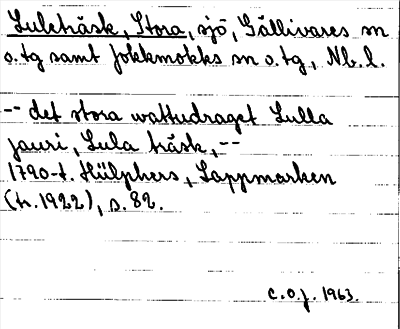 Luleträsk, Stora, sjö, Gällivares sn
o. tg samt Jokkmokks sn o. tg, Nb. l.
-- det stora wattudraget Lulla
jauri, Lula träsk, --
1790-t. Hülphers, Lappmarken
(tr. 1922), s. 82.
C.O.J. 1963.